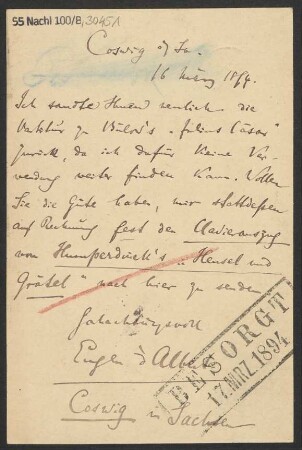 55 Nachl 100/B,30451
Coswig i/Sa.
16 März 1894.
Ich sandte Ihnen neulich die
Partitur zu Bülow's „Julius Cäsar"
zurück, da ich dafür keine Ver-
wendung weiter finden kann. Wollen
Sie die Güte haben, mir stattdessen
auf Rechnung fest den Clavierauszug
von Humperdinck's „Hensel und
Gretel" nach hier zu senden
Hochachtungsvoll
Eugen d'Albert
Coswig in Sachsen
BESORGT
17. MRZ. 1894